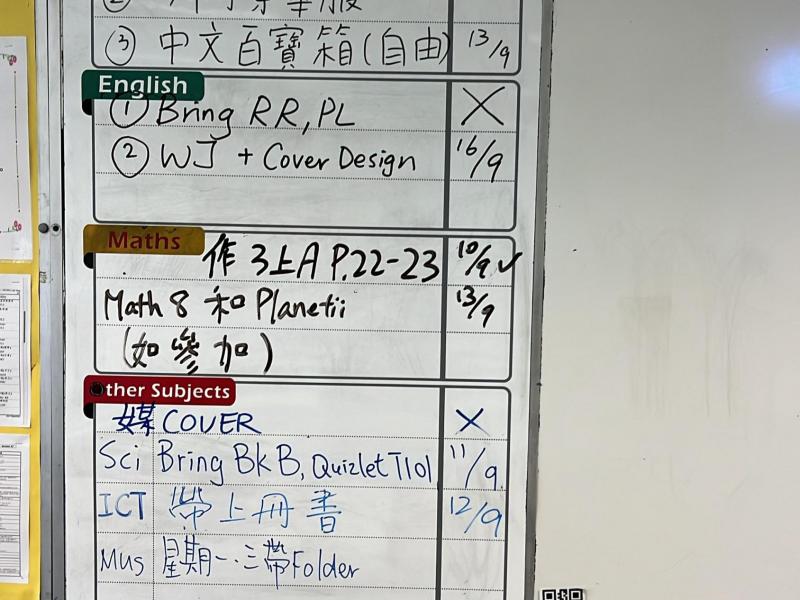 ③ 中文百寶箱(自由) 13/9
English
① Bring RR, PL X
② WJ + Cover Design 16/9
Maths
作 3上A P.22-23 10/9 ✓
Math 8 和 Planetii 13/9
(如參加)
Other Subjects
媒 COVER X
Sci Bring Bk B, Quizlet T101 11/9
ICT 帶上冊書 12/9
Mus 星期一.三帶Folder